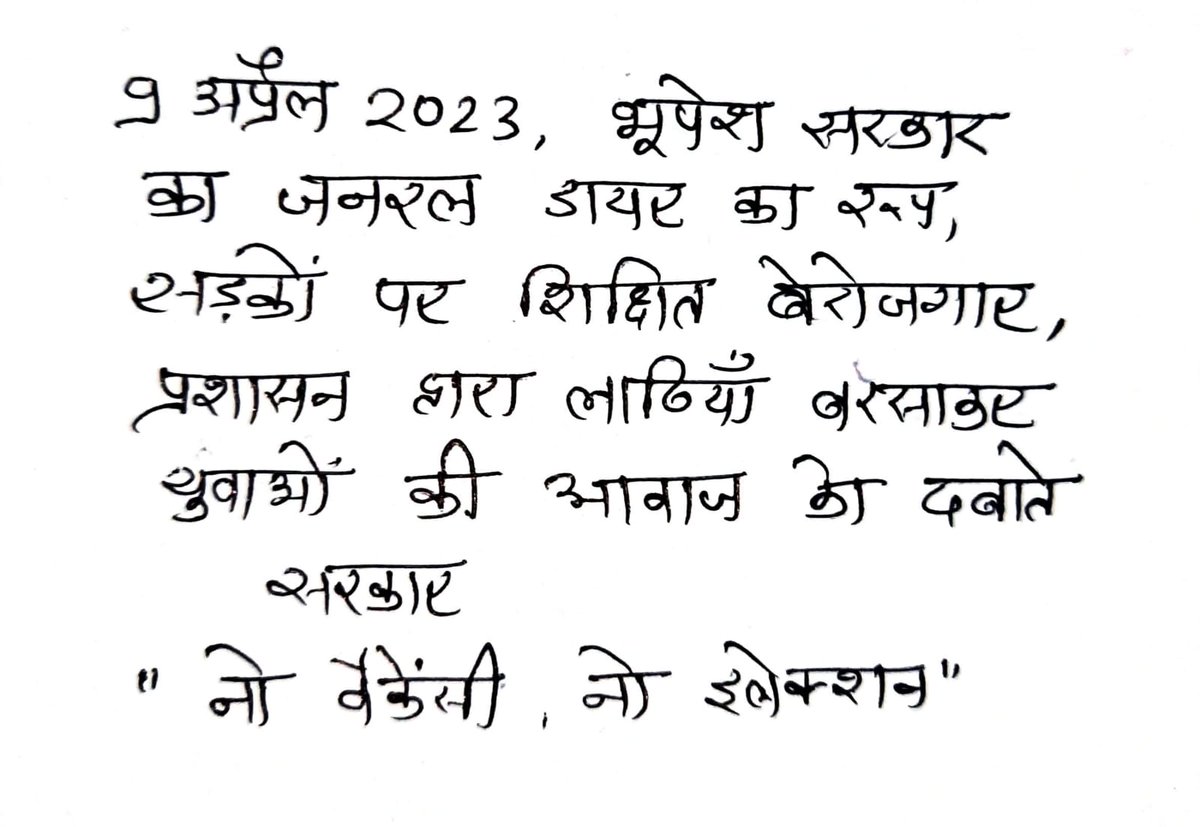 9 अप्रैल 2023, भूपेश सरकार
का जनरल डायर का रूप,
सड़कों पर शिक्षित बेरोजगार,
प्रशासन द्वारा लाठियाँ बरसाकर
युवाओं की आवाज को दबाते
सरकार
" नो वैकेंसी, नो इलेक्शन"